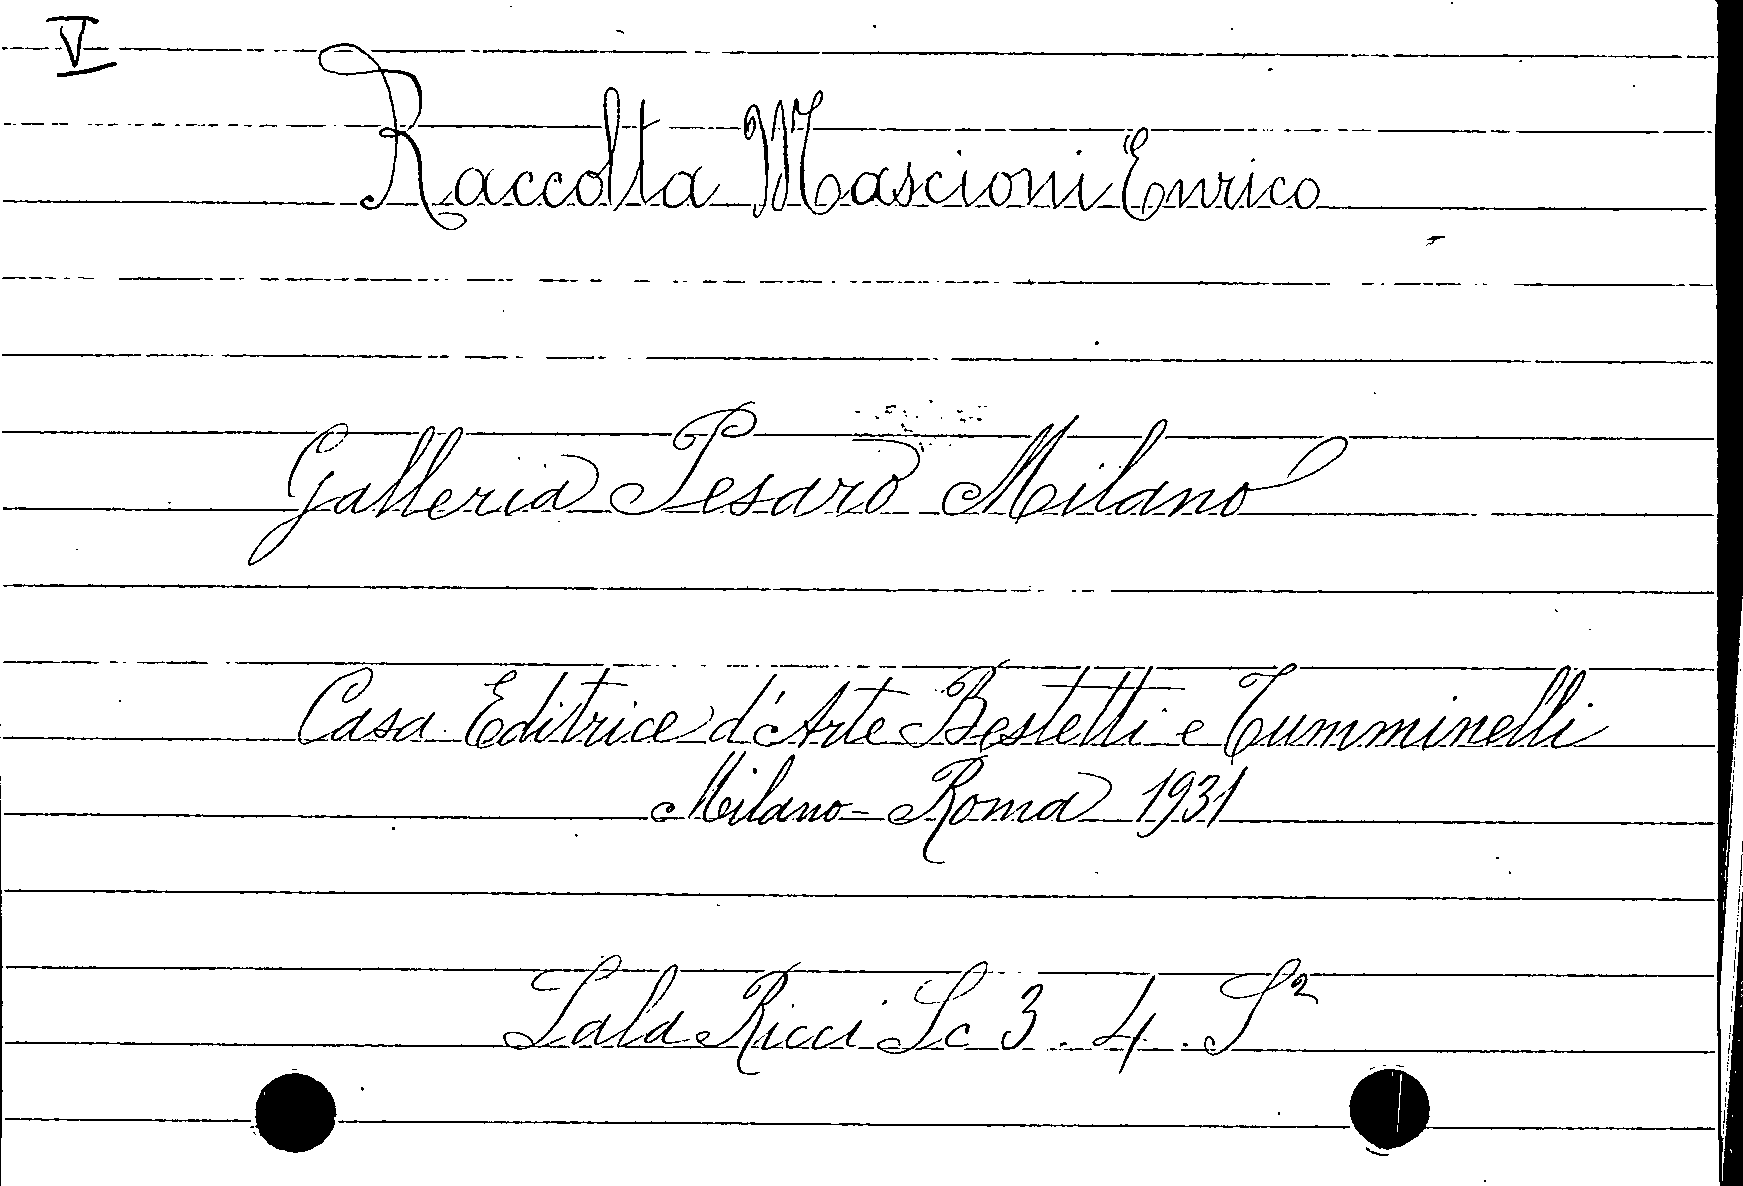 V
Raccolta Mascioni Enrico
Galleria Pesaro Milano
Casa Editrice d'Arte Bestetti e Tumminelli
Milano - Roma 1931
Sala Ricci Sc 3. 4. S²